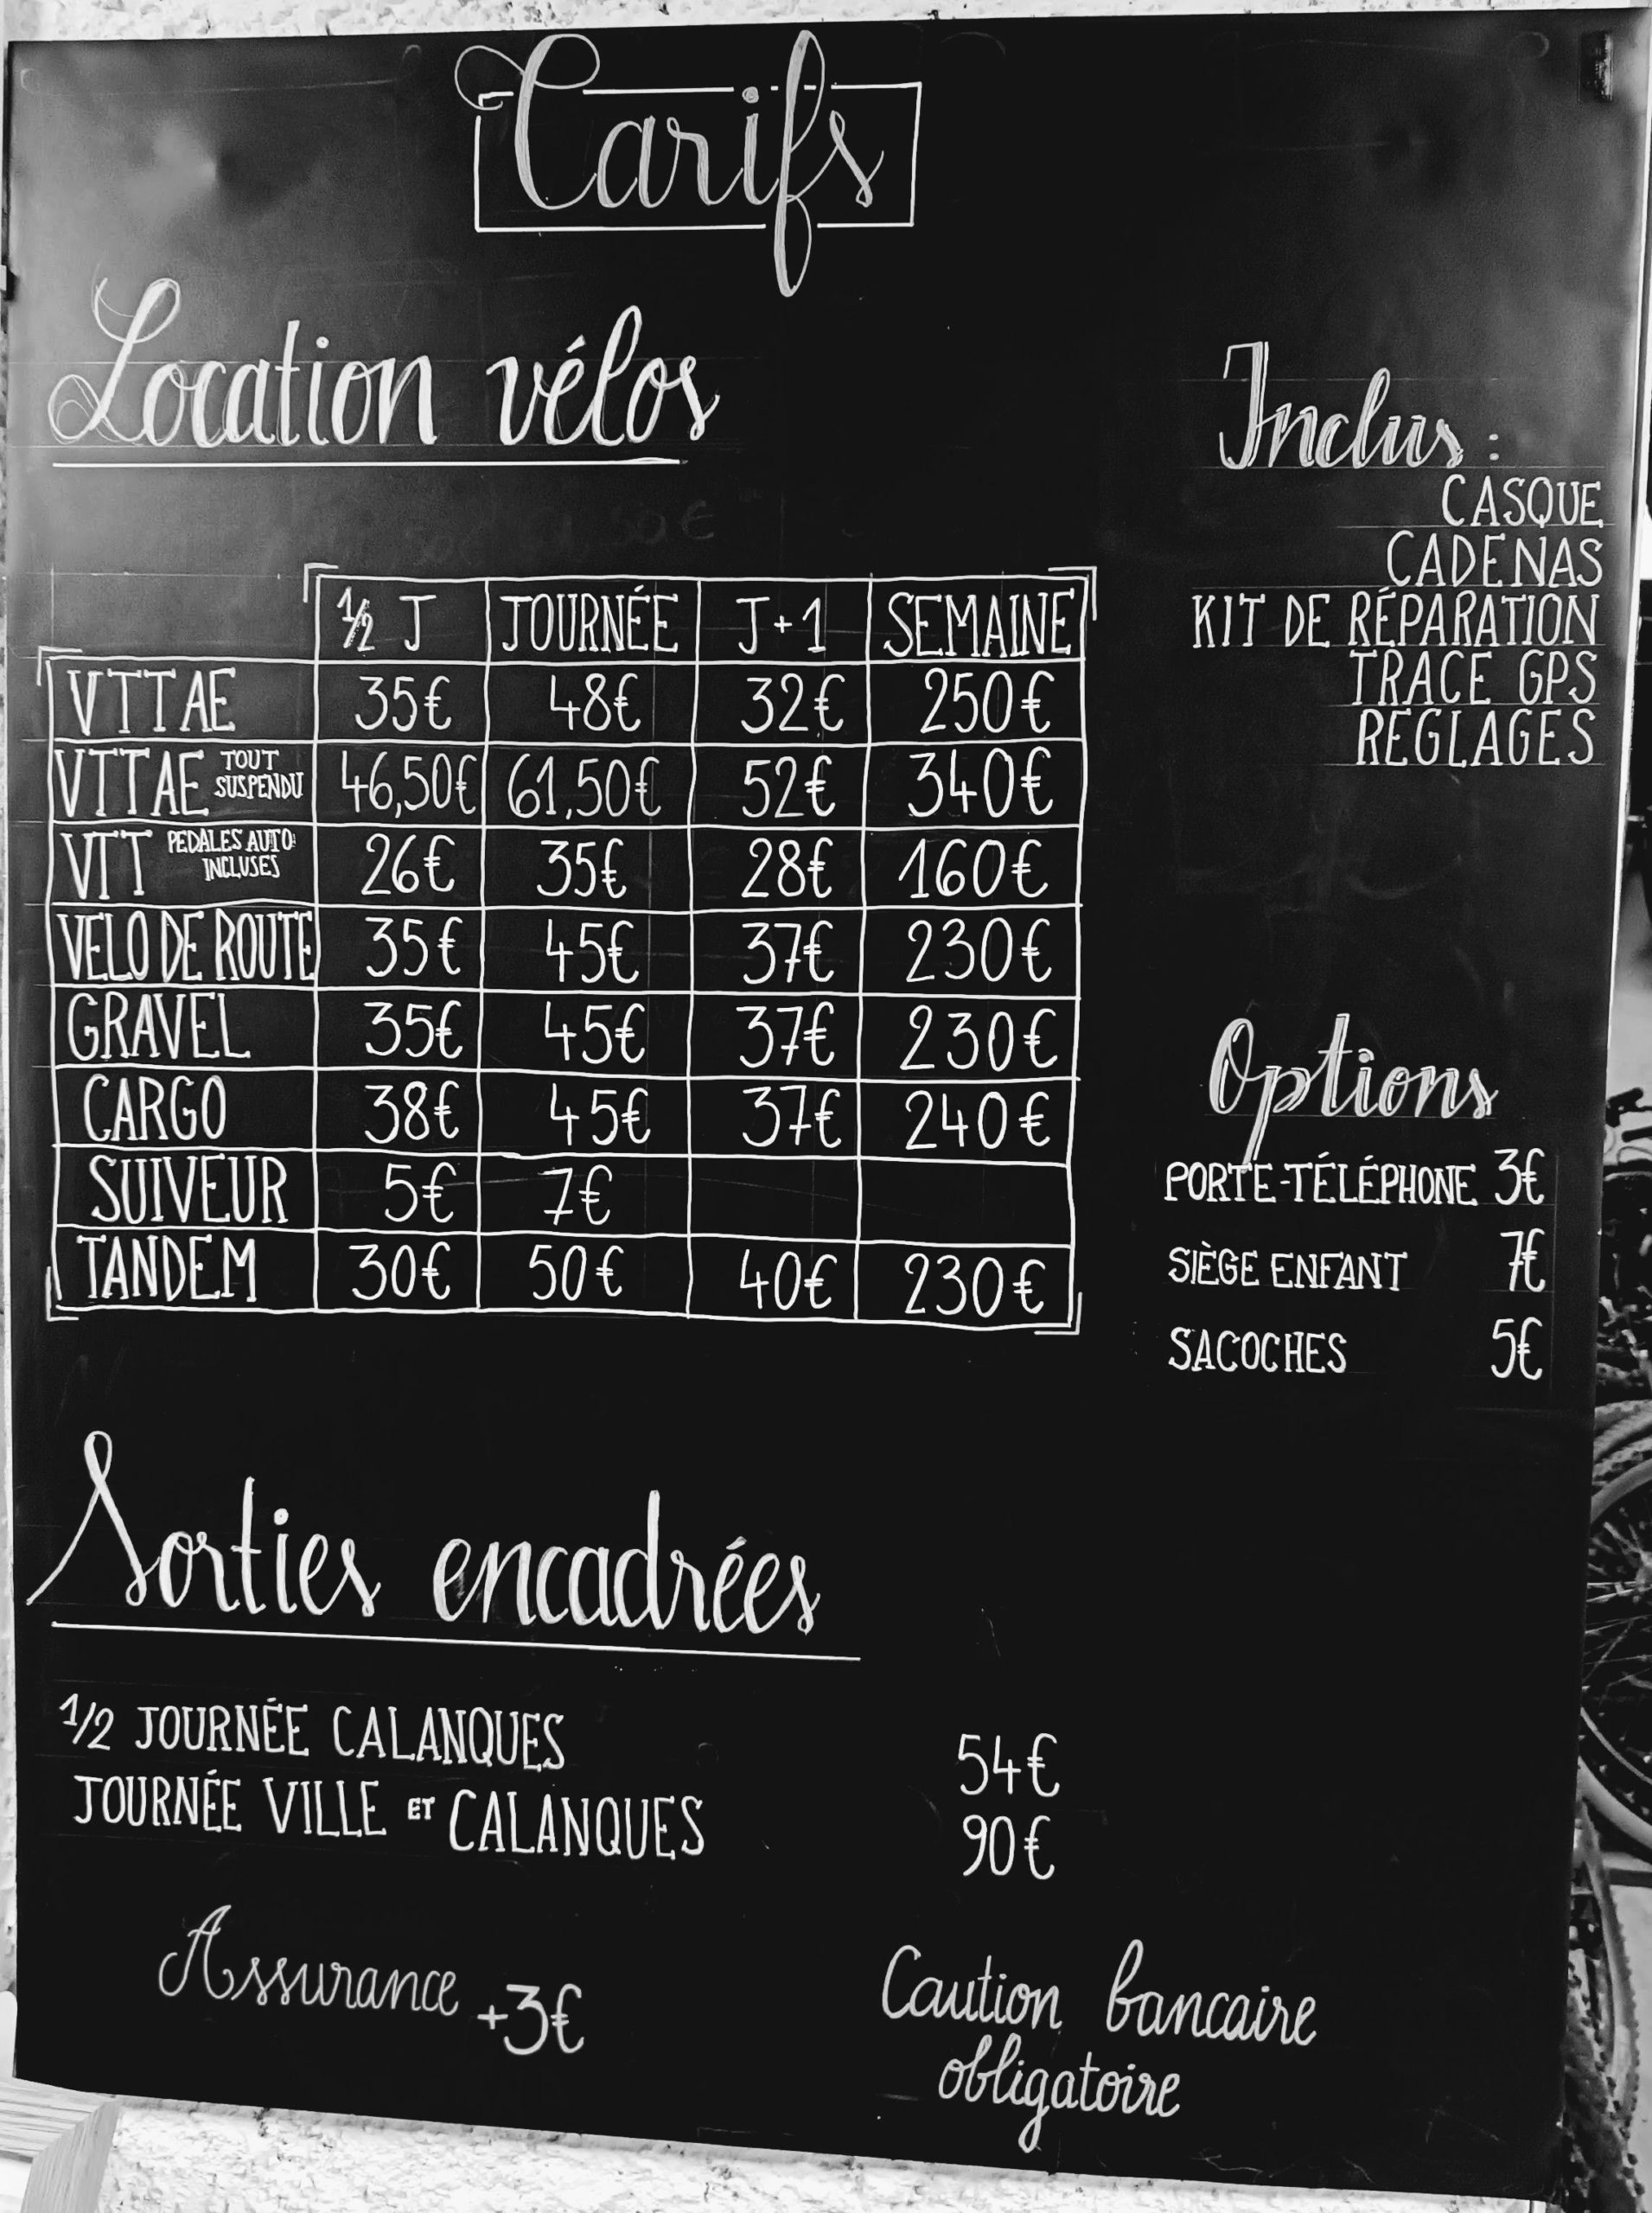 Tarifs
Location vélos
½ J JOURNÉE J+1 SEMAINE
VTTAE 35€ 48€ 32€ 250€
VTTAE TOUT SUSPENDU 46,50€ 61,50€ 52€ 340€
VTT PEDALES AUTO INCLUSES 26€ 35€ 28€ 160€
VELO DE ROUTE 35€ 45€ 37€ 230€
GRAVEL 35€ 45€ 37€ 230€
CARGO 38€ 45€ 37€ 240€
SUIVEUR 5€ 7€
TANDEM 30€ 50€ 40€ 230€
Inclus :
CASQUE
CADENAS
KIT DE RÉPARATION
TRACE GPS
REGLAGES
Options
PORTE-TÉLÉPHONE 3€
SIÈGE ENFANT 7€
SACOCHES 5€
Sorties encadrées
1/2 JOURNÉE CALANQUES 54€
JOURNÉE VILLE ET CALANQUES 90€
Assurance +3€
Caution bancaire
obligatoire